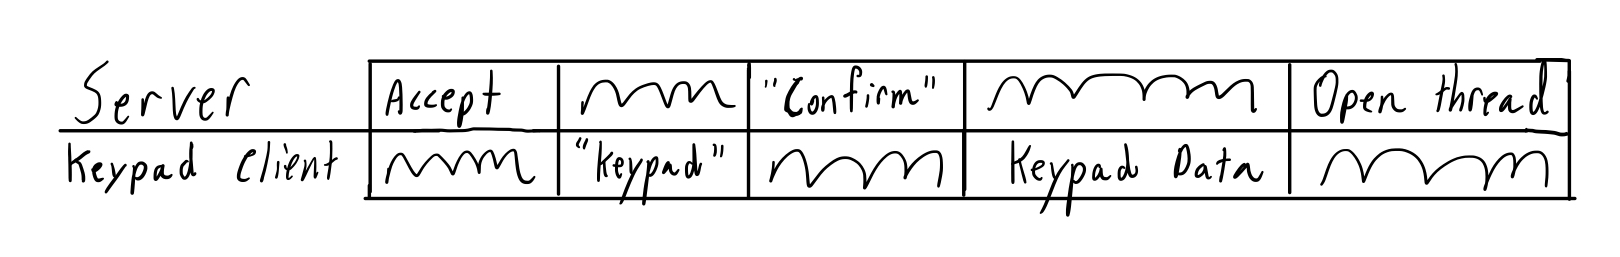 Server Accept "Confirm" Open thread
Keypad Client "Keypad" Keypad Data